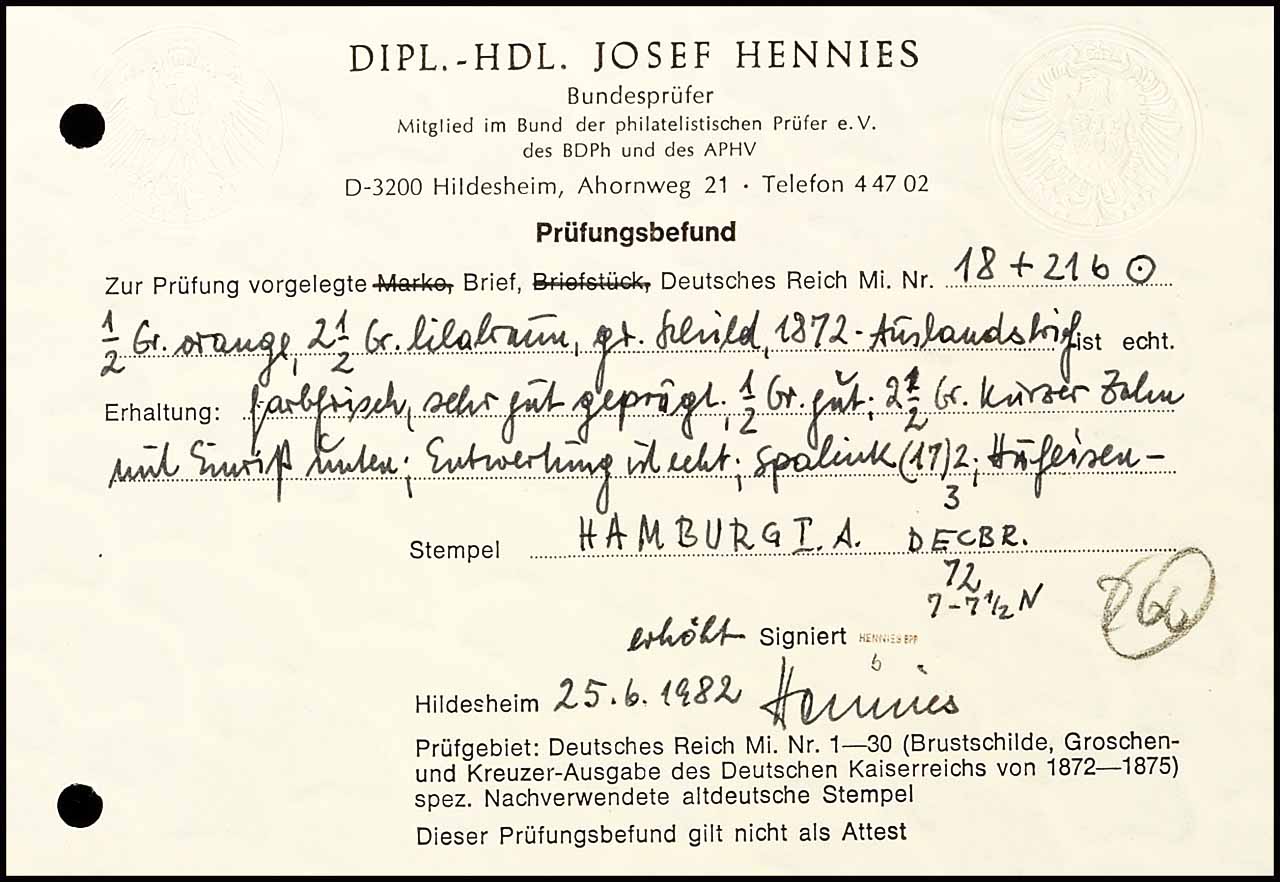 DIPL.-HDL. JOSEF HENNIES
Bundesprüfer
Mitglied im Bund der philatelistischen Prüfer e.V.
des BDPh und des APHV
D-3200 Hildesheim, Ahornweg 21 · Telefon 4 47 02
Prüfungsbefund
Zur Prüfung vorgelegte Marke, Brief, Briefstück, Deutsches Reich Mi. Nr. 18 + 21 b ⊙
1/2 Gr. orange, 2 1/2 Gr. lilabraun, gr. Schild, 1872-Auslandsbrief ist echt.
Erhaltung: farbfrisch, sehr gut geprägt; 1/2 Gr. gut; 2 1/2 Gr. kurzer Zahn
mit Einriß unten; Entwertung ist echt; Spalink (17)2; Hufeisen-
3
Stempel HAMBURG I. A. DECBR.
72
7-7 1/2 N
erhöht Signiert HENNIES BPP
b
Hildesheim 25.6.1982 Hennies
Prüfgebiet: Deutsches Reich Mi. Nr. 1—30 (Brustschilde, Groschen-
und Kreuzer-Ausgabe des Deutschen Kaiserreichs von 1872—1875)
spez. Nachverwendete altdeutsche Stempel
Dieser Prüfungsbefund gilt nicht als Attest